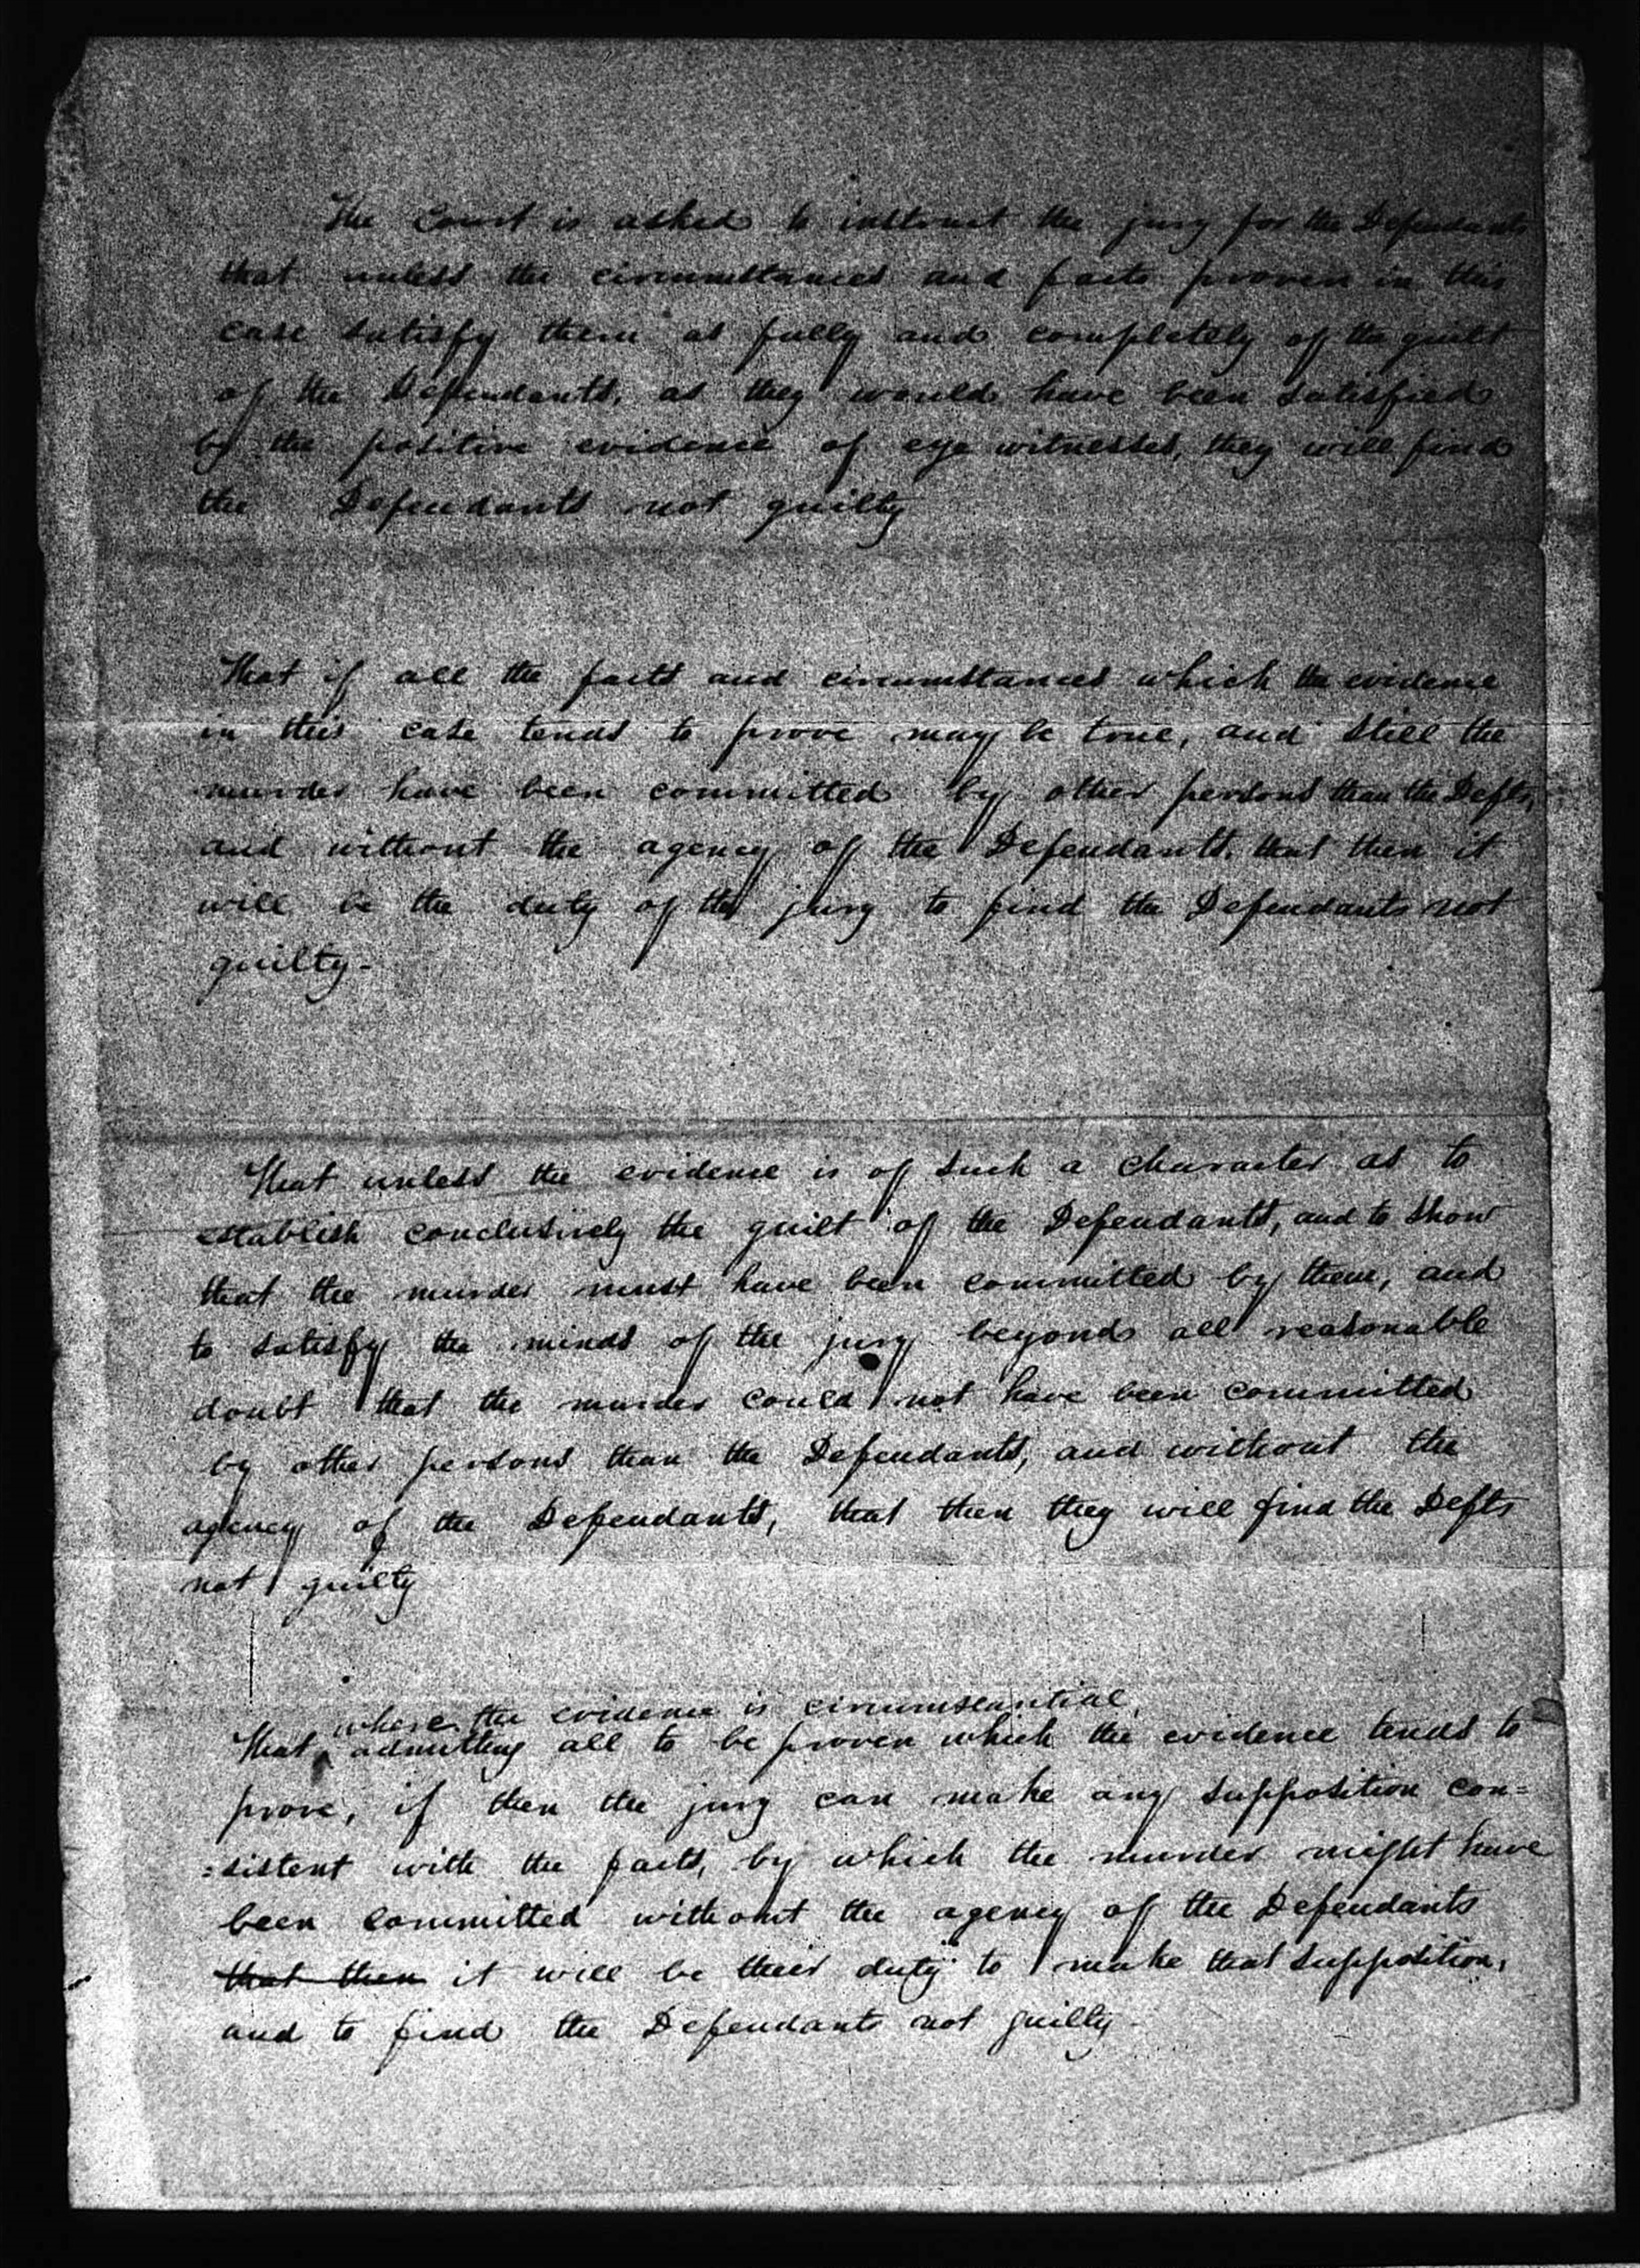 The Court is asked to instruct the jury for the Defendants
that unless the circumstances and facts proven in this
case satisfy them as fully and completely of the guilt
of the Defendants, as they would have been satisfied
by the positive evidence of eye witnesses, they will find
the Defendants not guilty
That if all the facts and circumstances which the evidence
in this case tends to prove may be true, and still the
murder have been committed by other persons than the Defts,
and without the agency of the Defendants, that then it
will be the duty of the jury to find the Defendants not
guilty-
That unless the evidence is of such a character as to
establish conclusively the guilt of the Defendants, and to show
that the murder must have been committed by them, and
to satisfy the minds of the jury beyond all reasonable
doubt that the murder could not have been committed
by other persons than the Defendants, and without the
agency of the Defendants, that then they will find the Defts
not guilty
where the evidence is circumstantial,
That admitting all to be proven which the evidence tends to
prove, if then the jury can make any supposition con=
=sistent with the facts, by which the murder might have
been committed without the agency of the Defendants
that then it will be their duty to make that supposition,
and to find the Defendants not guilty-